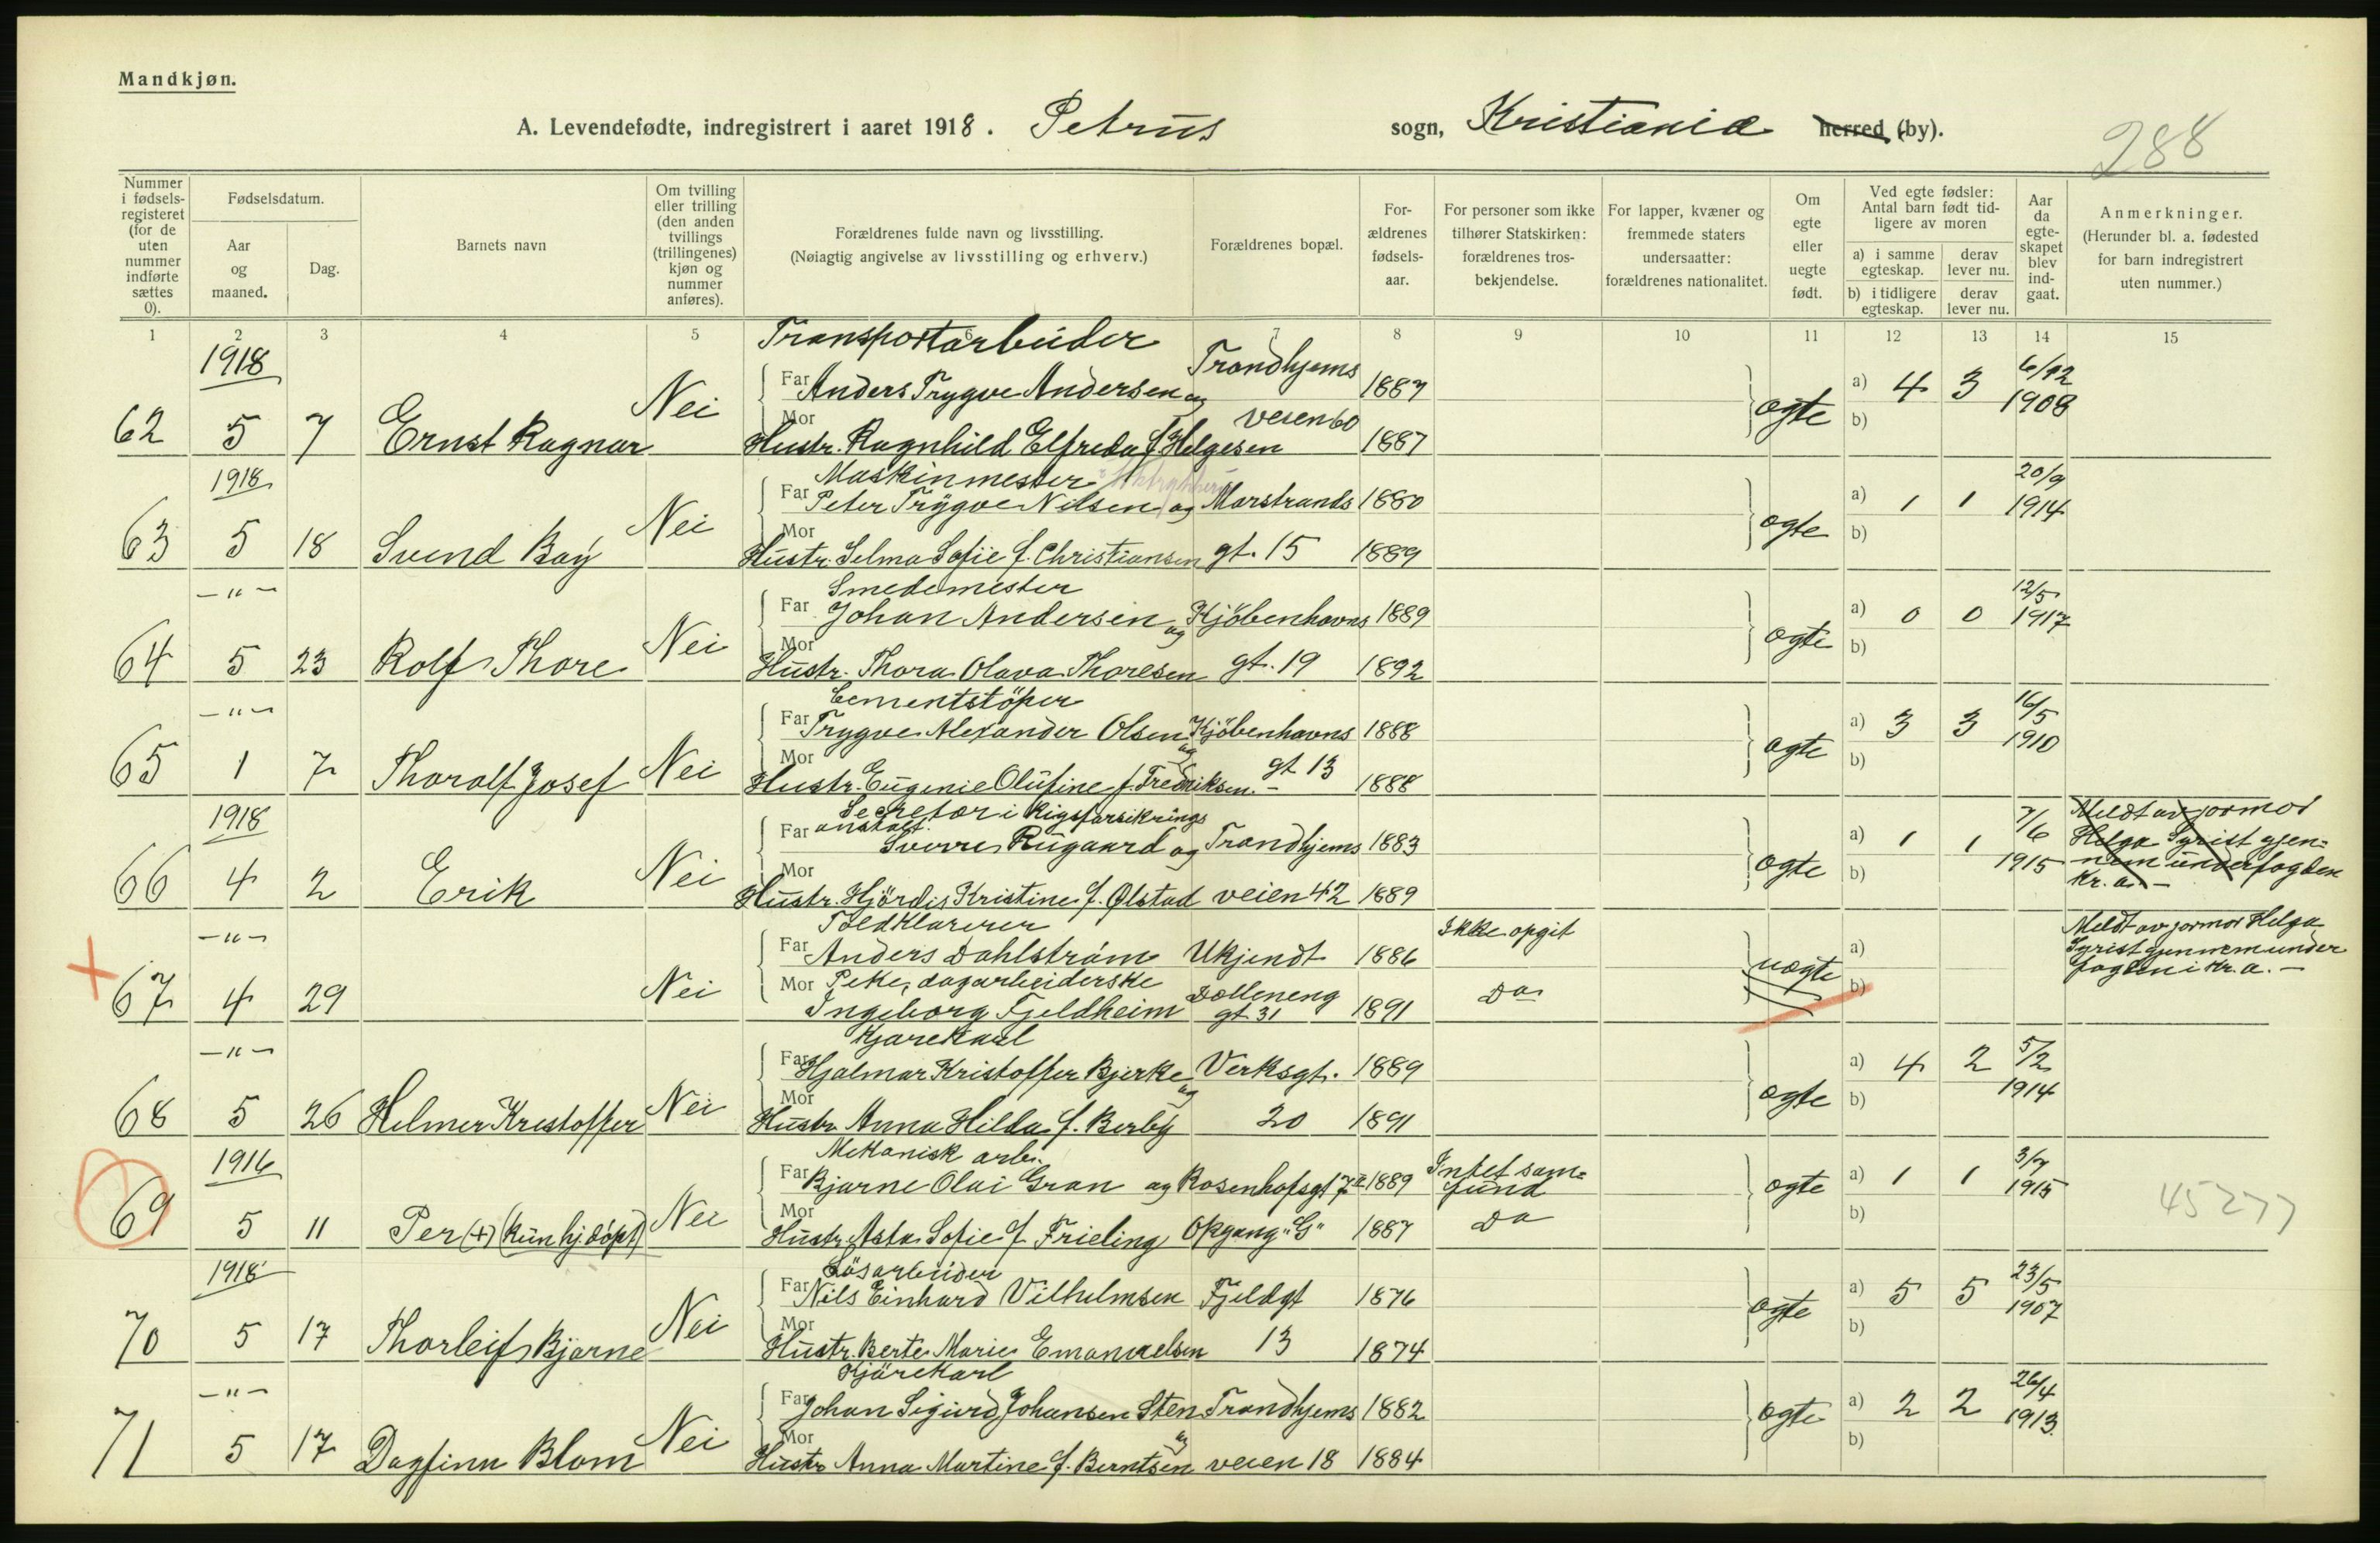 Mandkjøn.
A. Levendefødte, indregistrert i aaret 1918. Petrus sogn, Kristiania herred (by).
288
Nummer i fødselsregisteret (for de uten nummer indførte sættes 0).
Fødselsdatum.
Aar og maaned.
Dag.
Barnets navn
Om tvilling eller trilling (den anden tvillings (trillingenes) kjøn og nummer anføres).
Forældrenes fulde navn og livsstilling.
(Nøiagtig angivelse av livsstilling og erhverv.)
Forældrenes bopæl.
Forældrenes fødselsaar.
For personer som ikke tilhører Statskirken: forældrenes trosbekjendelse.
For lapper, kvæner og fremmede staters undersaatter: forældrenes nationalitet.
Om egte eller uegte født.
Ved egte fødsler: Antal barn født tidligere av moren
a) i samme egteskap. derav lever nu.
b) i tidligere egteskap. derav lever nu.
Aar da egteskapet blev indgaat.
Anmerkninger.
(Herunder bl. a. fødested for barn indregistrert uten nummer.)
1 2 3 4 5 6 7 8 9 10 11 12 13 14 15
1918 Transportarbeider
Far Anders Trygve Andersen og Trondhjems 1887 a) 4 3 6/12 1908
62 5 7 Ernst Ragnar Nei Mor Hustr. Ragnhild Elfreda f. Helgesen veien 60 1887 egte b)
1918 Maskinmester
Far Peter Trygve Nilsen og Marstrands 1880 a) 1 1 20/9 1914
63 5 18 Svend Bay Nei Mor Hustr. Selma Sofie f. Christiansen gt. 15 1889 egte b)
-"- Smedemester
Far Johan Andersen og Kjöbenhavns 1889 a) 0 0 12/5 1917
64 5 23 Rolf Thore Nei Mor Hustr. Thora Olava Thoresen gt. 19 1892 egte b)
-"- Cementstöper
Far Trygve Alexander Olsen og Kjöbenhavns 1888 a) 3 3 16/5 1910
65 1 7 Thoralf Josef Nei Mor Hustr. Eugenie Olufine f. Fredriksen. gt 13 1888 egte b)
1918 Secretær i Rigsforsikrings anstalt.
Far Sverre Rugaard og Trondhjems 1883 a) 1 1 7/6 1915 Meldt av jormor Helga Syrist gjennem underfogden Kr. a. -
66 4 2 Erik Nei Mor Hustr. Hjördis Kristine f. Ølstad veien 42 1889 egte b)
-"- Toldklarerer Ikke opgit
Far Anders Dahlström Ukjendt 1886 a) Meldt av jormor Helga Syrist gjennem under fogden i Kr. a. -
67 4 29 Nei Mor Pike, dagarbeiderske Ingeborg Fjeldheim gt 31 1891 Do uegte b)
-"- Kjørekarl
Far Hjalmar Kristoffer Bjerke og Verksgt. 1889 a) 4 2 5/2 1914
68 5 26 Helmer Krestoffer Nei Mor Hustr Anna Hilda f. Berby 20 1891 egte b)
1916 Mekanisk arb.
Far Bjarne Olai Gran og Rosenhofsgt 7 II 1889 Intet samfund egte a) 1 1 3/7 1915
69 5 11 Per (+) (kun hjdöpt) Nei Mor Hustr. Asta Sofie f. Frieling Opgang "G" 1887 Do b) 45277
1918 Lösarbeider
Far Nils Einhard Vilhelmsen Fjeldgt 1876 a) 5 5 23/5 1907
70 5 17 Thorleif Bjarne Nei Mor Hustr. Berte Marie Emanuelsen 13 1874 egte b)
-"- Kjörekarl
Far Johan Sigurd Johansen Sten og Trondhjems 1882 a) 2 2 26/4 1913
71 5 17 Dagfinn Blom Nei Mor Hustr Anna Martine f. Berntsen veien 18 1884 egte b)